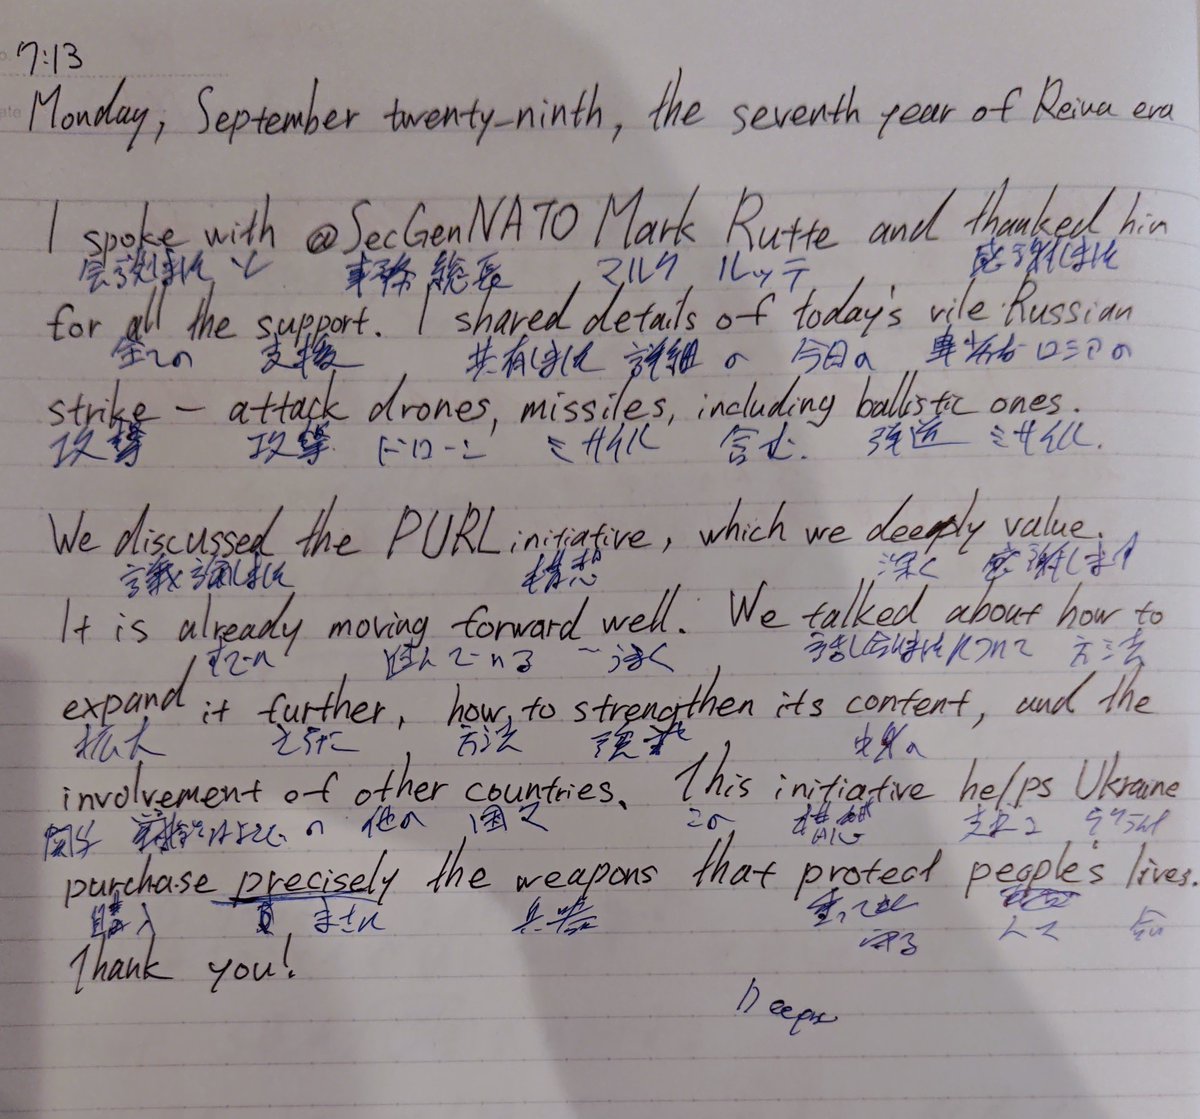 7:13
Monday, September twenty-ninth, the seventh year of Reiwa era
I spoke with @SecGenNATO Mark Rutte and thanked him
会談しました と 事務総長 マルク ルッテ 感謝しました
for all the support. I shared details of today's vile Russian
全ての 支援 共有しました 詳細 の 今日の 卑劣な ロシアの
strike — attack drones, missiles, including ballistic ones.
攻撃 攻撃 ドローン ミサイル 含む. 弾道 ミサイル.
We discussed the PURL initiative, which we deeply value.
議論しました 構想 深く 感謝します
It is already moving forward well. We talked about how to
すでに 進んでいる 話し合いました について 方法
expand it further, how to strengthen its content, and the
拡大 さらに 方法 強化
involvement of other countries. This initiative helps Ukraine
関与 の 他の 国々 この 構想 支援 ウクライナ
purchase precisely the weapons that protect people's lives.
購入 まさに 兵器
守る 人々 命
Thank you!